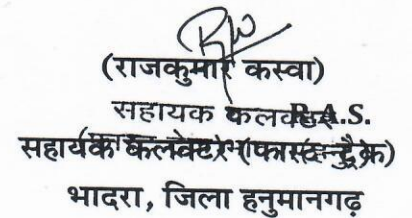 (राजकुमार कस्वा)
सहायक कलक्टर R.A.S.
सहायक कलक्टर (फास्ट ट्रैक)
भादरा, जिला हनुमानगढ़